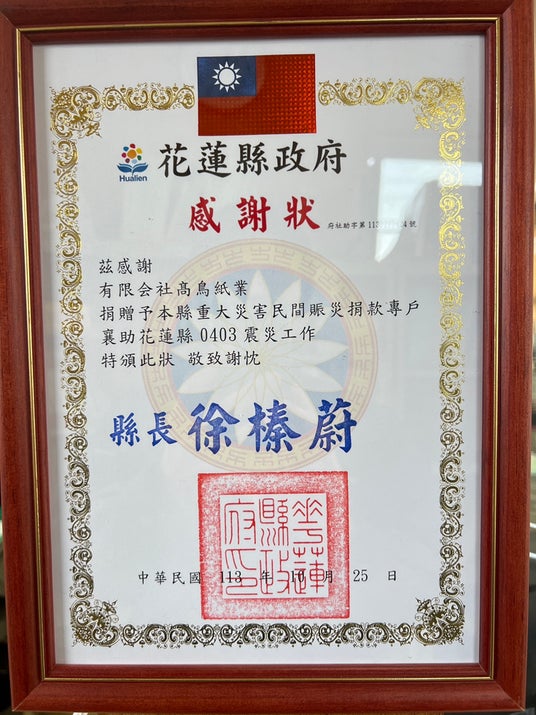 Hualien
花蓮縣政府
感謝狀
府社助字第113 4號
茲感謝
有限会社髙鳥紙業
捐贈予本縣重大災害民間賑災捐款專戶
襄助花蓮縣0403震災工作
特頒此狀 敬致謝忱
縣長 徐榛蔚
花蓮縣政府印
中華民國 113 年 10 月 25 日